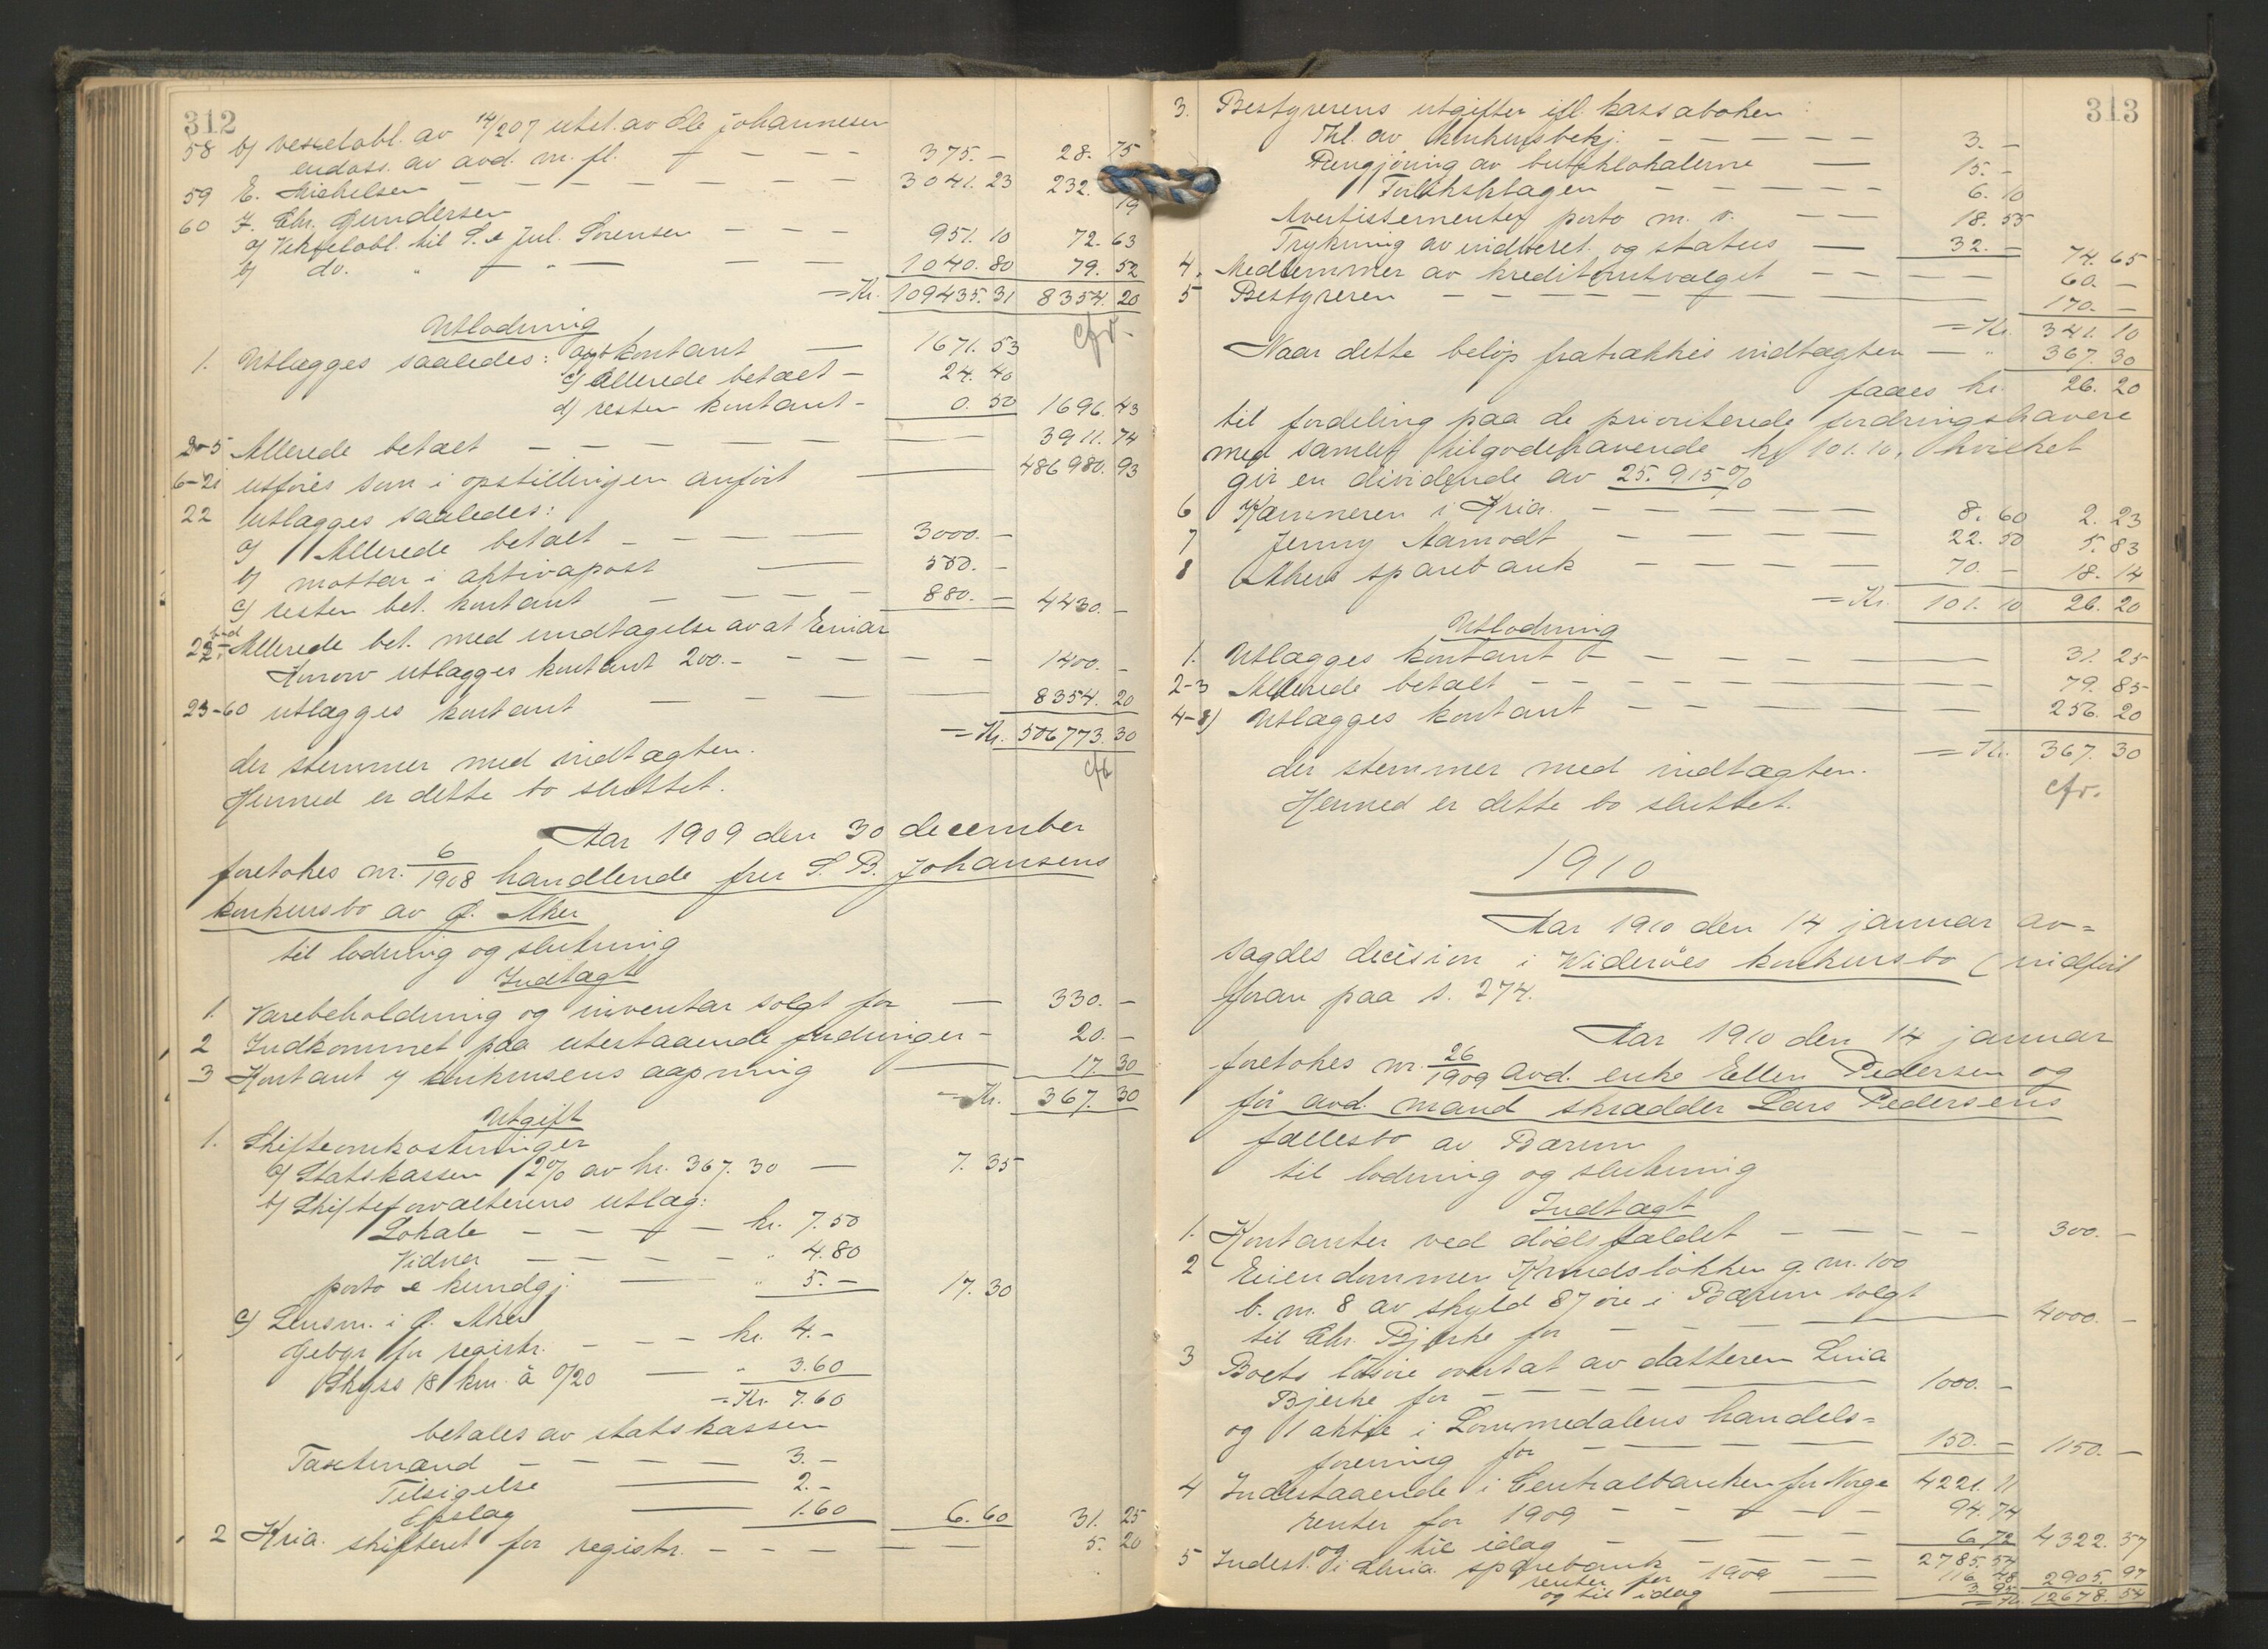 312
58 b) vexelobl. av 14/2 07 utst. av Ole Johannesen
endoss. av avd. m. fl. — — — — 375.— 28.75
59 E. Michelsen — — — — — — 3041.23 232.19
60 F. Chr. Gundersen
a) Vekselobl. til S. & Jul. Sørensen — — — 951.10 72.63
b) do. " — " — — — 1040.80 79.52
=Kr. 109435.31 8354.20
Utlodning cfr.
1. Utlægges saaledes: kontant — 1671.53
c) Allerede betalt — 24.40
d) resten kontant — 0.50 1696.43
2-5 Allerede betalt — — — — — — 3911.74
6-21 utføres som i opstillingen anført — — 486980.93
22 Utlægges saaledes:
a) Allerede betalt — — — — 3000.—
b) mottar i aktivapost — 550.—
c) resten bet. kontant — — — — 880.— 4430.—
22 Allerede bet. med undtagelse av at Einar
utlægges kontant 200.— — — — — 1400.—
23-60 utlægges kontant — — — 8354.20
=Kr. 506773.30
der stemmer med indtægten. cfr
Hermed er dette bo sluttet.
Aar 1909 den 30 december
foretokes nr. 6/1908 handlende fru S. B. Johansens
konkursbo av Ø. Aker
til lodning og slutning
Indtægt
1. Varebeholdning og inventar solgt for — 330.—
2 Indkommet paa utestaaende fordringer — 20.—
3 Kontant v konkursens aapning — 17.30
=Kr. 367.30
Utgift
1. Skifteomkostninger
a) Statskassen 2% av kr. 367.30 — 7.35
b) Skifteforvalterens utlæg:
Lokale — — — — kr. 7.50
Vidner — — — — " 4.80
porto & kundgj. — " 5.— 17.30
c) Lensm. i Ø. Aker
Gebyr for registr. — — — kr. 4.—
Skyss 18 km. à 0/20 — " 3.60
=Kr. 7.60
betales av statskassen
Takstmænd — — — — — 3.—
Tilsigelse — 2.—
Opslag — 1.60 6.60 31.25
2 Kria. skifteret for registr. — — — — — — 5.20
313
3. Bestyrerens utgifter ifl. kassaboken:
Tbl. av konkursbekj. — — — — — 3.—
Rengjøring av butiklokalerne — 15.—
— — — — — 6.10
Avertissementer porto m. v. — — 18.55
Trykning av indberet. og status — 32.— 74.65
4. Medlemmer av kreditorutvalget — — — — 60.—
5 Bestyreren — — — — — — — — 170.—
=Kr. 341.10
Naar dette beløp fratrækkes indtægten — " 367.30
faaes kr. 26.20
til fordeling paa de prioriterede fordringshavere
med samlet tilgodehavende kr 101.10, hvilket
gir en dividende av 25.915%
6 Kæmneren i Kria. — — — — — 8.60 2.23
7 Jenny Aamodt — — — — — 22.50 5.83
8 Akers sparebank — — — — — 70.— 18.14
=Kr. 101.10 26.20
Utlodning
1. Utlægges kontant — — — — — — 31.25
2-3 Allerede betalt — — — — — — — 79.85
4-8) Utlægges kontant — — — — — — 256.20
=Kr. 367.30
der stemmer med indtægten. cfr.
Hermed er dette bo sluttet.
1910
Aar 1910 den 14 januar av=
sagdes decision i Widerøes konkursbo (indført
foran paa s. 274.
Aar 1910 den 14 januar
foretokes nr. 26/1909 avd. enke Ellen Pedersen og
før avd. mand skrædder Lars Pedersens
fællesbo av Bærum
til lodning og slutning
Indtægt
1. Kontanter ved dødsfaldet — — — — 300.—
2 Eiendommen Knudsløkken g. nr. 100
b. nr. 8 av skyld 87 øre i Bærum solgt
til Chr. Bjerke for — — — — — 4000.—
3 Boets løsøre overtat av datteren Lina
Bjerke for — — — — — — 1000.—
og 1 aktie i Lommedalens handels=
forening for — — — — — 150.— 1150.—
4 Indestaaende i Centralbanken for Norge 4221.11
renter for 1909 — — — — — 94.74
og til idag — — — — 6.72 4322.57
5 Indest. i Chria. sparebank — — — — 2785.54
renter for 1909 — 116.48 2905.97
og til idag — 3.95
=Kr. 12678.54